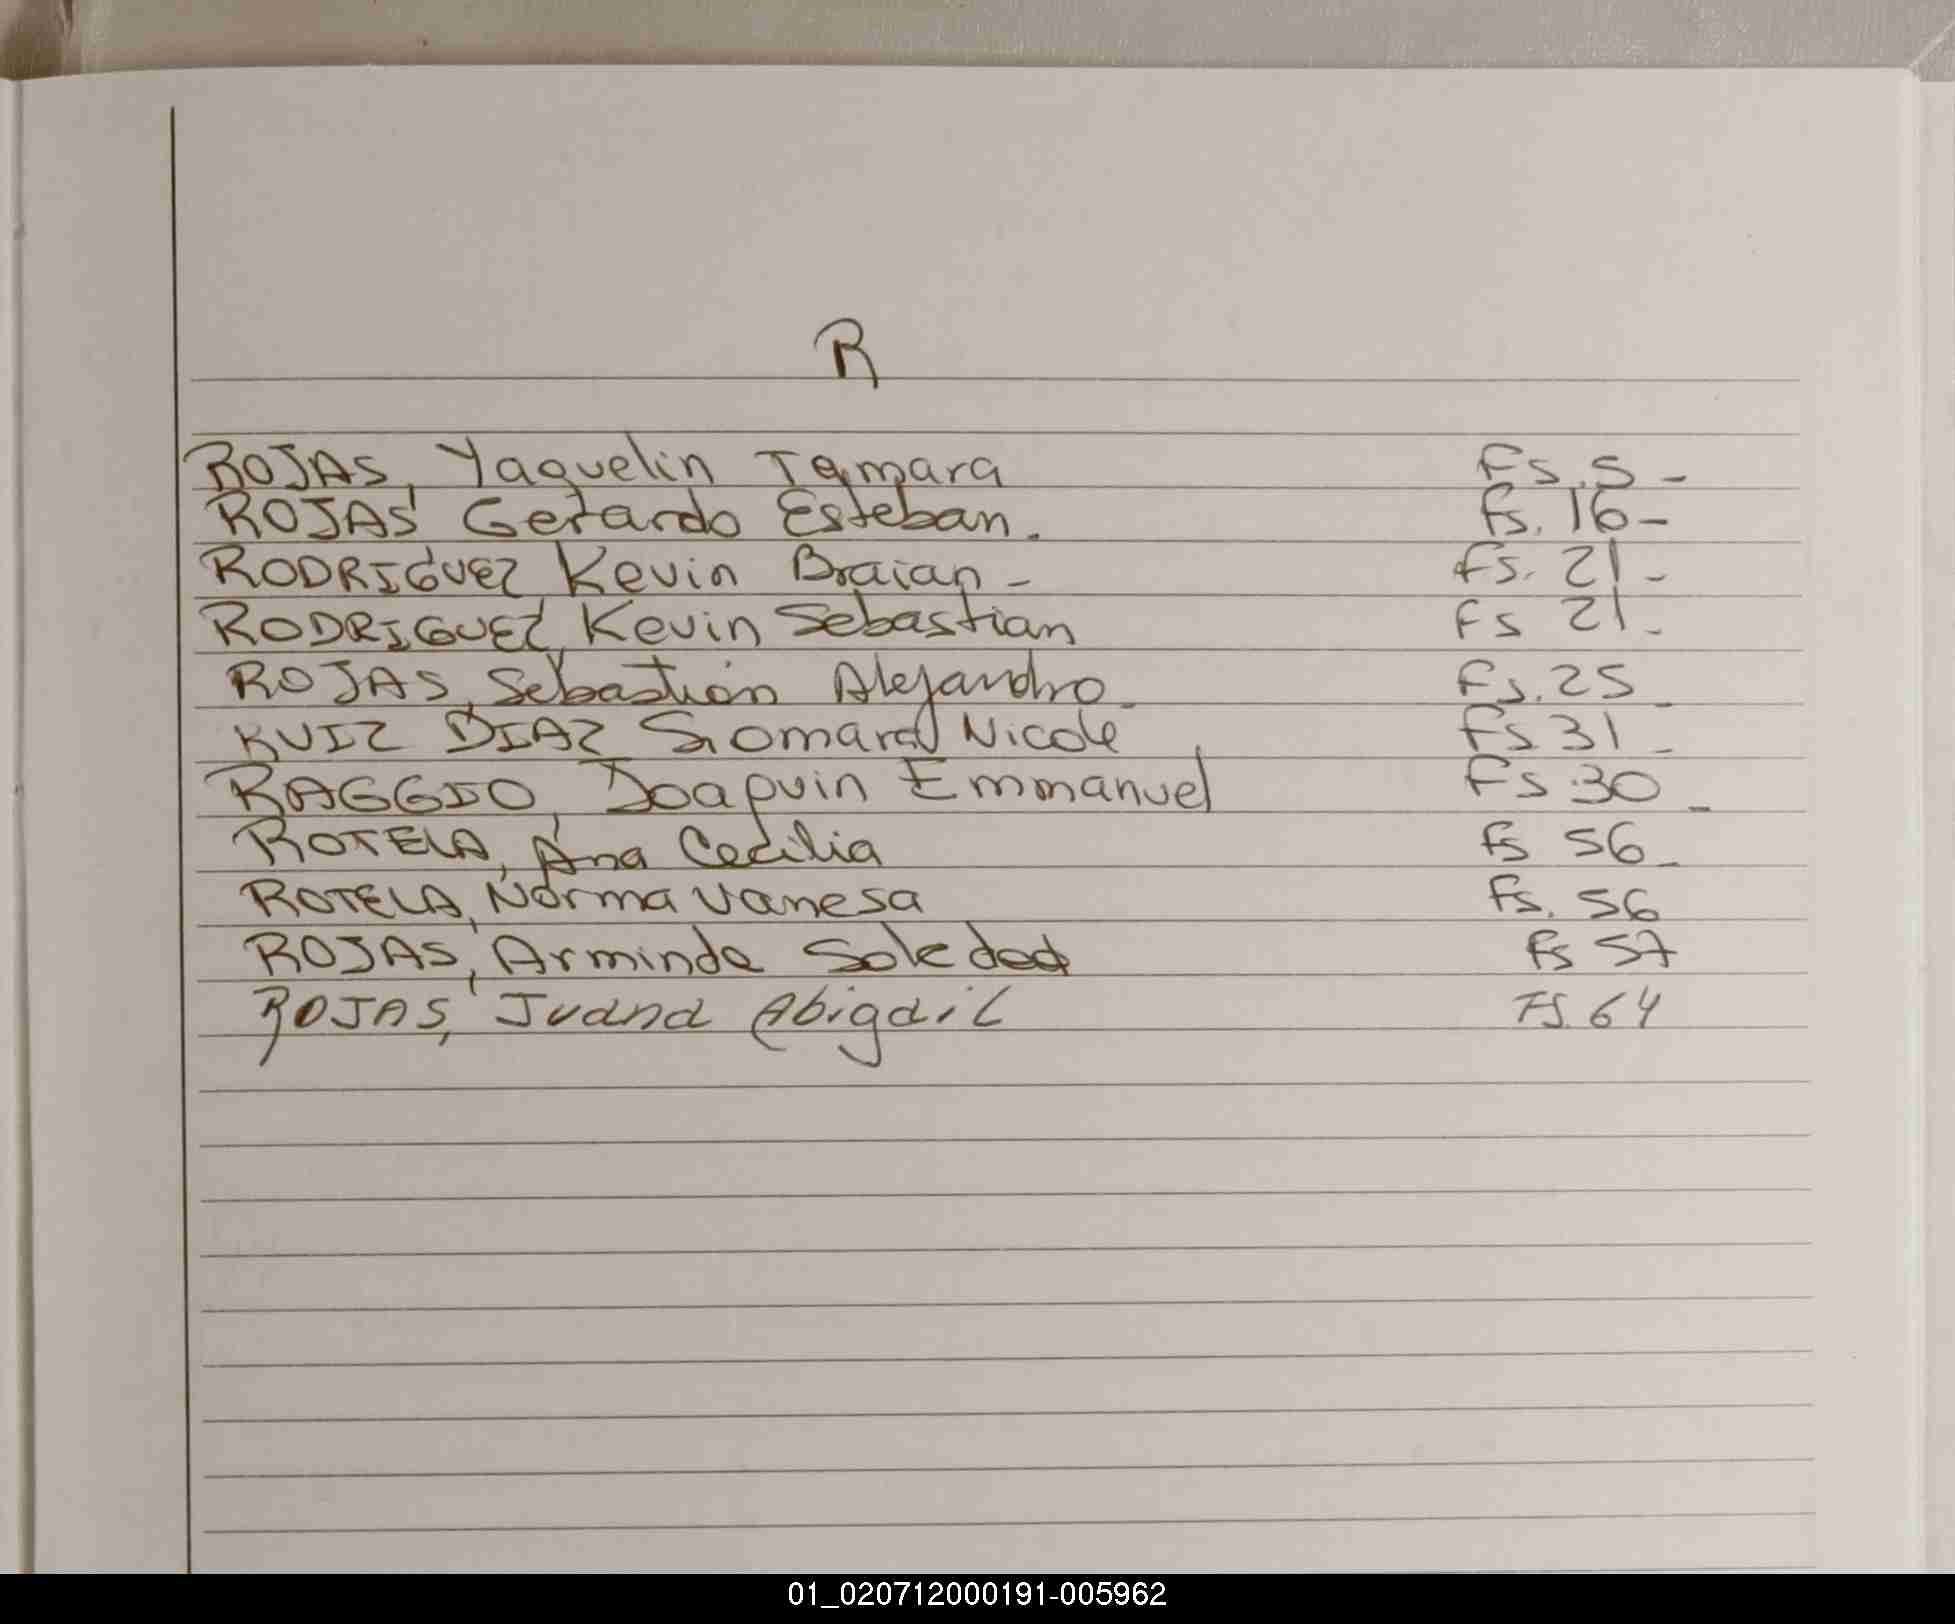 R
ROJAS, Yaquelin Tamara Fs. 5_
ROJAS Gerardo Esteban. Fs. 16_
RODRIGUEZ Kevin Braian_ Fs. 21_
RODRIGUEZ, Kevin Sebastian Fs 21_
ROJAS, Sebastián Alejandro_ Fs. 25_
RUIZ DIAZ Siomara Nicole Fs 31_
RAGGIO, Joaquin Emmanuel Fs 30_
ROTELA, Ana Cecilia Fs 56_
ROTELA, Norma Vanesa Fs. 56
ROJAS, Arminda Soledad Fs 57
ROJAS, Juana Abigail FS. 64
01_020712000191-005962